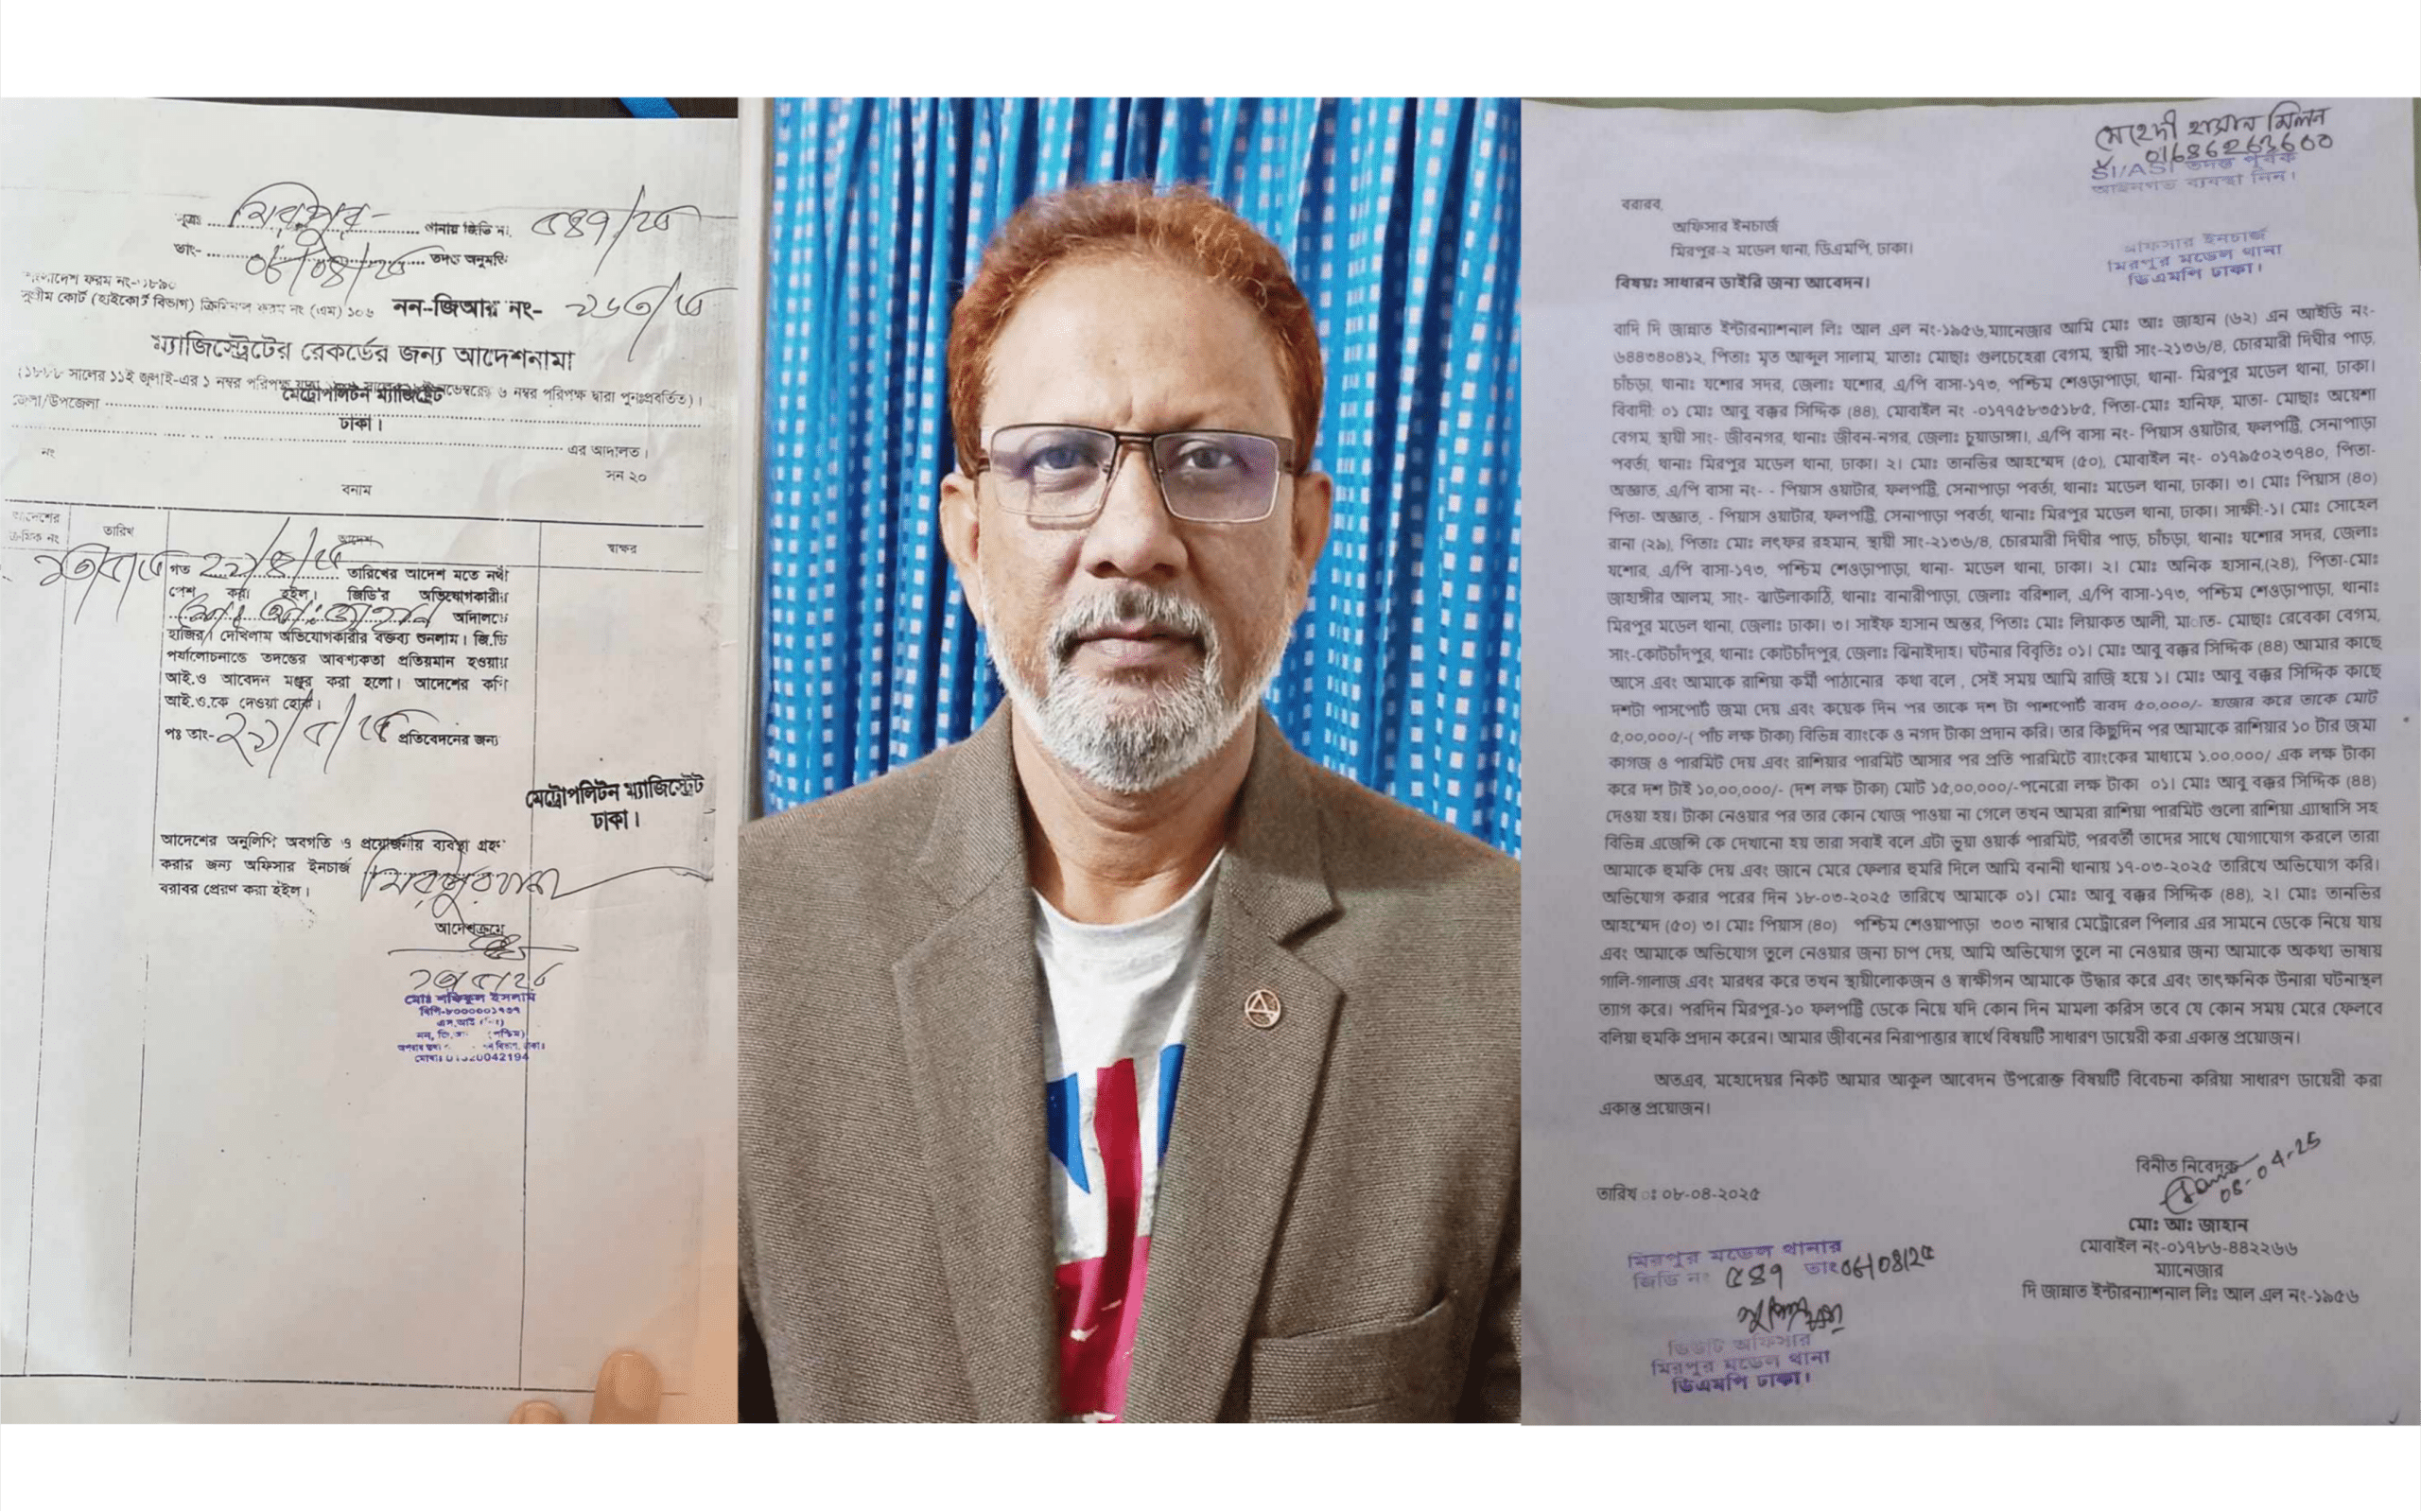 সূত্রঃ মিরপুর - থানার জিডি নং ৫৪৭/২৫
তাং- ০৮/০৪/২৫ তদন্ত অনুমতি
বাংলাদেশ ফরম নং-৩৮৯০
সুপ্রীম কোর্ট (হাইকোর্ট বিভাগ) ক্রিমিনাল ফরম নং (এম) ১০৬ নন-জিআর নং-
ম্যাজিস্ট্রেটের রেকর্ডের জন্য আদেশনামা
(১৮৮৮ সালের ১১ই জুলাই-এর ১ নম্বর পরিপত্র ৬ নম্বর পরিপত্র দ্বারা পুনঃপ্রবর্তিত)।
মেট্রোপলিটন ম্যাজিস্ট্রেট
জেলা/উপজেলা
ঢাকা।
এর আদালত।
নং
সন ২০
বনাম
আদেশের ক্রমিক নং
তারিখ
আদেশ
স্বাক্ষর
গত তারিখের আদেশ মতে নথী
পেশ করা হইল। জিডি'র অভিযোগকারীর
মোঃ আঃ জাহান আদালতে
হাজির। দেখিলাম অভিযোগকারীর বক্তব্য শুনলাম। জি.ডি
পর্যালোচনান্তে তদন্তের আবশ্যকতা প্রতিয়মান হওয়ায়
আই.ও আবেদন মঞ্জুর করা হলো। আদেশের কপি
আই.ও.কে দেওয়া হোক।
পঃ তাং- ২১/৫/২৫ প্রতিবেদনের জন্য
মেট্রোপলিটন ম্যাজিস্ট্রেট
ঢাকা।
আদেশের অনুলিপি অবগতি ও প্রয়োজনীয় ব্যবস্থা গ্রহণ
করার জন্য অফিসার ইনচার্জ মিরপুর থানা
বরাবর প্রেরণ করা হইল।
আদেশক্রমে
মোঃ শফিকুল ইসলাম
বিপি-৮০০০০০১৭৩৭
এস.আই
(পশ্চিম)
মেহেদী হাসান মিলন
01686263600
SI/ASI তদন্ত পূর্বক
আইনগত ব্যবস্থা নিন।
অফিসার ইনচার্জ
মিরপুর মডেল থানা
ডিএমপি ঢাকা।
বরারব,
অফিসার ইনচার্জ
মিরপুর-২ মডেল থানা, ডিএমপি, ঢাকা।
বিষয়ঃ সাধারন ডাইরি জন্য আবেদন।
বাদি দি জান্নাত ইন্টারন্যাশনাল লিঃ আল এল নং-১৯৫৬,ম্যানেজার আমি মোঃ আঃ জাহান (৬২) এন আইডি নং-
৬৪৪৩৪০৪১২, পিতাঃ মৃত আব্দুল সালাম, মাতাঃ মোছাঃ গুলচেহেরা বেগম, স্থায়ী সাং-২১৩৬/৪, চোরমারী দিঘীর পাড়,
চাঁচড়া, থানাঃ যশোর সদর, জেলাঃ যশোর, এ/পি বাসা-১৭৩, পশ্চিম শেওড়াপাড়া, থানা- মিরপুর মডেল থানা, ঢাকা।
বিবাদী: ০১ মোঃ আবু বক্কর সিদ্দিক (৪৪), মোবাইল নং -০১৭৭৫৮৩৫১৮৫, পিতা-মোঃ হানিফ, মাতা- মোছাঃ অয়েশা
বেগম, স্থায়ী সাং- জীবনগর, থানাঃ জীবন-নগর, জেলাঃ চুয়াডাঙ্গা।, এ/পি বাসা নং- পিয়াস ওয়াটার, ফলপট্টি, সেনাপাড়া
পবর্তা, থানাঃ মিরপুর মডেল থানা, ঢাকা। ২। মোঃ তানভির আহম্মেদ (৫০), মোবাইল নং- ০১৭৯৫০২৩৭৪০, পিতা-
অজ্ঞাত, এ/পি বাসা নং- - পিয়াস ওয়াটার, ফলপট্টি, সেনাপাড়া পবর্তা, থানাঃ মডেল থানা, ঢাকা। ৩। মোঃ পিয়াস (৪০)
পিতা- অজ্ঞাত, - পিয়াস ওয়াটার, ফলপট্টি, সেনাপাড়া পবর্তা, থানাঃ মিরপুর মডেল থানা, ঢাকা। সাক্ষী:-১। মোঃ সোহেল
রানা (২৯), পিতাঃ মোঃ লৎফর রহমান, স্থায়ী সাং-২১৩৬/৪, চোরমারী দিঘীর পাড়, চাঁচড়া, থানাঃ যশোর সদর, জেলাঃ
যশোর, এ/পি বাসা-১৭৩, পশ্চিম শেওড়াপাড়া, থানা- মডেল থানা, ঢাকা। ২। মোঃ অনিক হাসান,(২৪), পিতা-মোঃ
জাহাঙ্গীর আলম, সাং- ঝাউলাকাঠি, থানাঃ বানারীপাড়া, জেলাঃ বরিশাল, এ/পি বাসা-১৭৩, পশ্চিম শেওড়াপাড়া, থানাঃ
মিরপুর মডেল থানা, জেলাঃ ঢাকা। ৩। সাইফ হাসান অন্তর, পিতাঃ মোঃ লিয়াকত আলী, মাাত- মোছাঃ রেবেকা বেগম,
সাং-কোটচাঁদপুর, থানাঃ কোটচাঁদপুর, জেলাঃ ঝিনাইদাহ। ঘটনার বিবৃতিঃ ০১। মোঃ আবু বক্কর সিদ্দিক (৪৪) আমার কাছে
আসে এবং আমাকে রাশিয়া কর্মী পাঠানোর কথা বলে , সেই সময় আমি রাজি হয়ে ১। মোঃ আবু বক্কর সিদ্দিক কাছে
দশটা পাসপোর্ট জমা দেয় এবং কয়েক দিন পর তাকে দশ টা পাশপোর্ট বাবদ ৫০,০০০/- হাজার করে তাকে মোট
৫,০০,০০০/-( পাঁচ লক্ষ টাকা) বিভিন্ন ব্যাংকে ও নগদ টাকা প্রদান করি। তার কিছুদিন পর আমাকে রাশিয়ার ১০ টার জমা
কাগজ ও পারমিট দেয় এবং রাশিয়ার পারমিট আসার পর প্রতি পারমিটে ব্যাংকের মাধ্যমে ১.০০.০০০/ এক লক্ষ টাকা
করে দশ টাই ১০,০০,০০০/- (দশ লক্ষ টাকা) মোট ১৫,০০,০০০/-পনেরো লক্ষ টাকা ০১। মোঃ আবু বক্কর সিদ্দিক (৪৪)
দেওয়া হয়। টাকা নেওয়ার পর তার কোন খোজ পাওয়া না গেলে তখন আমরা রাশিয়া পারমিট গুলো রাশিয়া এ্যাম্বাসি সহ
বিভিন্ন এজেন্সি কে দেখানো হয় তারা সবাই বলে এটা ভুয়া ওয়ার্ক পারমিট, পরবর্তী তাদের সাথে যোগাযোগ করলে তারা
আমাকে হুমকি দেয় এবং জানে মেরে ফেলার হুমরি দিলে আমি বনানী থানায় ১৭-০৩-২০২৫ তারিখে অভিযোগ করি।
অভিযোগ করার পরের দিন ১৮-০৩-২০২৫ তারিখে আমাকে ০১। মোঃ আবু বক্কর সিদ্দিক (৪৪), ২। মোঃ তানভির
আহম্মেদ (৫০) ৩। মোঃ পিয়াস (৪০) পশ্চিম শেওয়াপাড়া ৩০৩ নাম্বার মেট্রোরেল পিলার এর সামনে ডেকে নিয়ে যায়
এবং আমাকে অভিযোগ তুলে নেওয়ার জন্য চাপ দেয়, আমি অভিযোগ তুলে না নেওয়ার জন্য আমাকে অকথ্য ভাষায়
গালি-গালাজ এবং মারধর করে তখন স্থায়ীলোকজন ও স্বাক্ষীগন আমাকে উদ্ধার করে এবং তাৎক্ষনিক উনারা ঘটনাস্থল
ত্যাগ করে। পরদিন মিরপুর-১০ ফলপট্টি ডেকে নিয়ে যদি কোন দিন মামলা করিস তবে যে কোন সময় মেরে ফেলবে
বলিয়া হুমকি প্রদান করেন। আমার জীবনের নিরাপাত্তার স্বার্থে বিষয়টি সাধারণ ডায়েরী করা একান্ত প্রয়োজন।
অতএব, মহোদেয়র নিকট আমার আকুল আবেদন উপরোক্ত বিষয়টি বিবেচনা করিয়া সাধারণ ডায়েরী করা
একান্ত প্রয়োজন।
বিনীত নিবেদক
08-04-25
তারিখ ঃ ০৮-০৪-২০২৫
মোঃ আঃ জাহান
মোবাইল নং-০১৭৮৬-৪৪২২৬৬
ম্যানেজার
দি জান্নাত ইন্টারন্যাশনাল লিঃ আল এল নং-১৯৫৬
মিরপুর মডেল থানার
জিডি নং ৫৪৭ তাং ০৮/০৪/২৫
ডিউটি অফিসার
মিরপুর মডেল থানা
ডিএমপি ঢাকা।